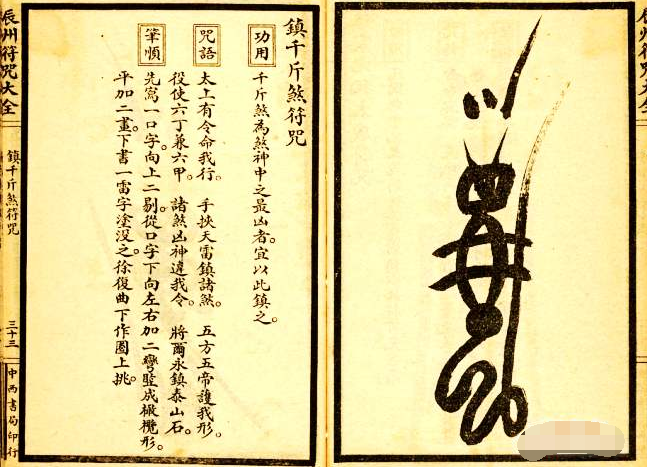 辰州符咒大全
鎮千斤煞符咒
功用
千斤煞為煞神中之最凶者。宜以此鎮之。
咒語
太上有令命我行。　手挾天雷鎮諸煞。　五方五帝護我形。
役使六丁兼六甲。　諸煞凶神違我令。　將爾永鎮泰山石。
筆順
先寫一口字。向上二剔。從口字下向左右加二彎豎成橄欖形。
平加二畫。下書一雷字塗沒之。徐復曲下作圈上挑。
辰州符咒大全
鎮千斤煞符咒
三十三
中西書局印行